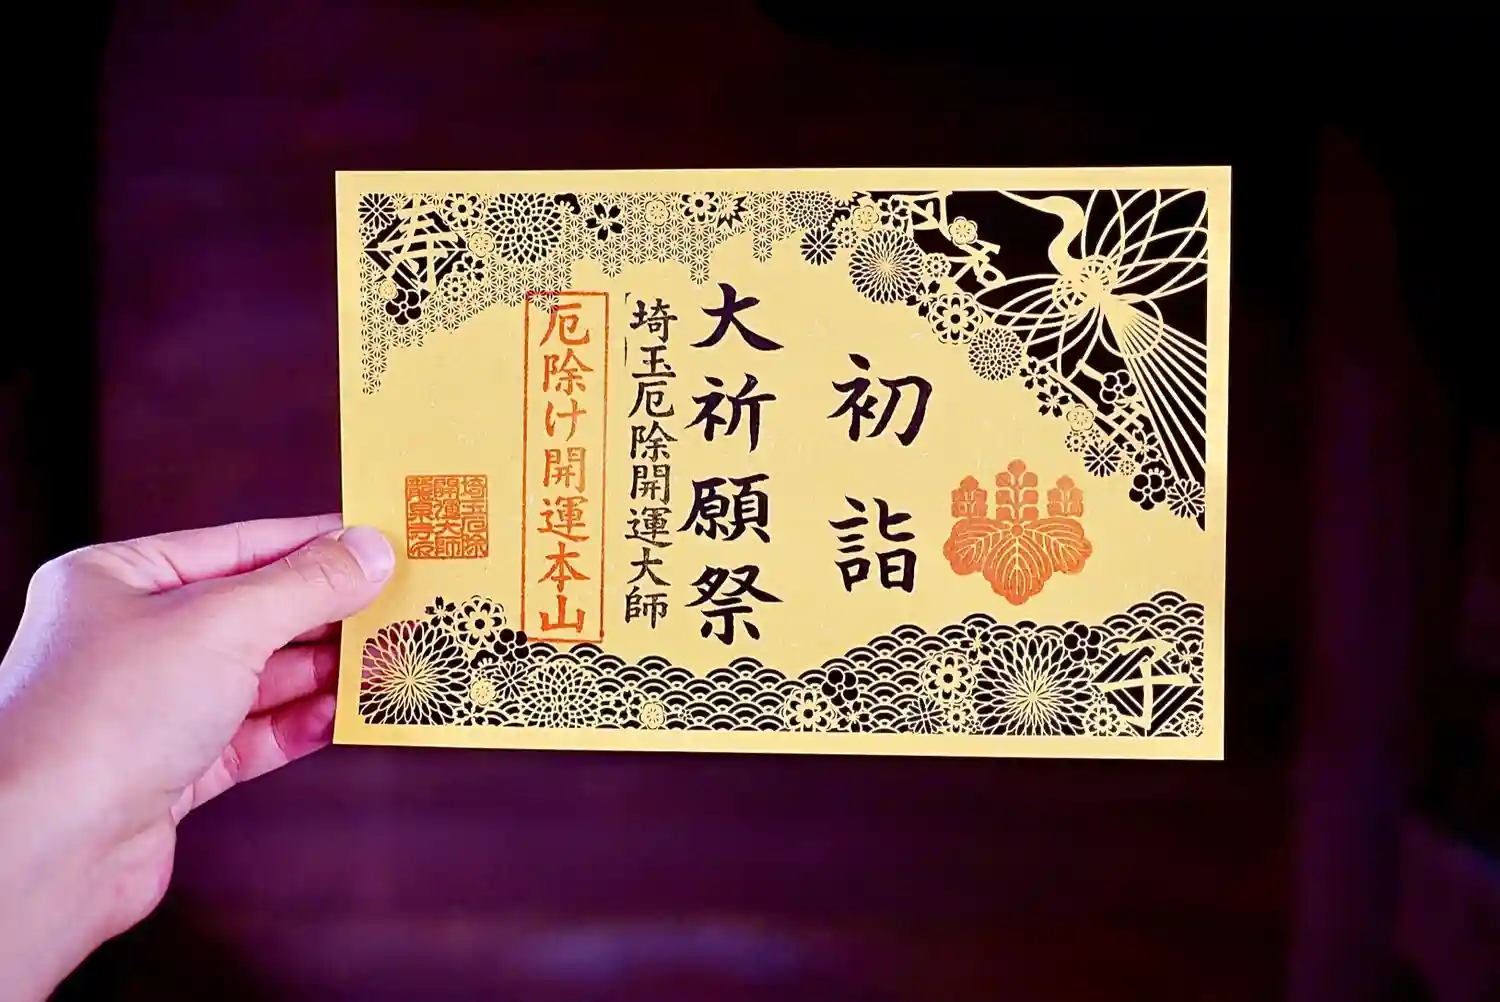 初詣
大祈願祭
埼玉厄除開運大師
厄除け開運本山
埼玉厄除
開運大師
龍泉寺印
寿
子